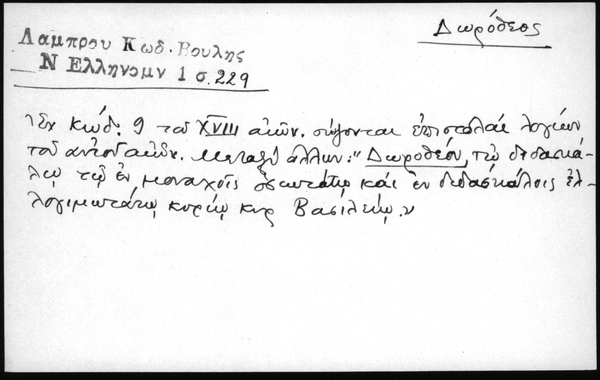 Δωρόθεος
Λαμπρου Κωδ. Βουλης
Ν Ελληνομν 1 σ. 229
Ἐν Κώδ. 9 τοῦ XVIII αἰών. σῴζονται ἐπιστολαί λογίων
τοῦ αὐτοῦ αἰῶν. Μεταξύ ἄλλων: "Δωροθέου τῷ διδασκά-
λῳ τῷ ἐν μοναχοῖς ὁσιωτάτῳ καί ἐν διδασκάλοις ἐλ-
λογιμωτάτῳ κυρίῳ κυρ Βασιλείῳ."